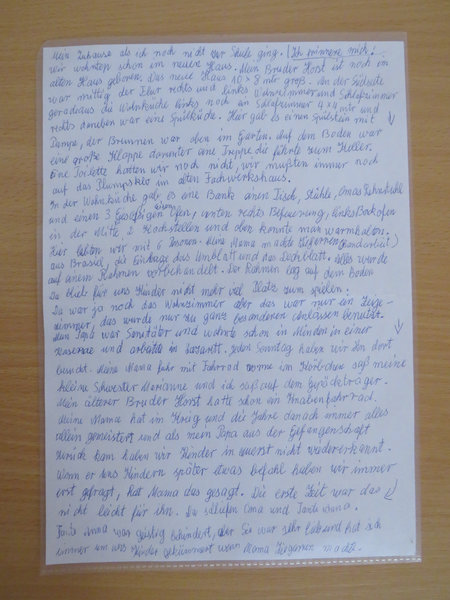 Mein Zuhause als ich noch nicht zur Schule ging. (Ich erinnere mich!
Wir wohnten schon im neuen Haus. Mein Bruder Horst ist noch im
alten Haus geboren. Das neue Haus 10 x 8 mtr groß. An der Südseite
war mittig der Flur rechts und links Wohnzimmer und Schlafzimmer
geradeaus die Wohnküche links noch ein Schlafzimmer 4 x 4 mtr und
rechts daneben war eine Spülküche. Hier gab es einen Spülstein mit
Pumpe, der Brunnen war oben im Garten. Auf dem Boden war
eine große Klappe darunter eine Treppe die führte zum Keller.
Eine Toilette hatten wir noch nicht, wir mußten immer noch
auf das Plumpsklo im alten Fachwerkshaus.
In der Wohnküche gab es eine Bank einen Tisch, Stühle, Omas Lehnstuhl
und einen 3 Ofen, unten rechts Befeuerung, links Backofen
in der Mitte 2 Kochstellen und oben konnte man warmhalten.
Hier lebten wir mit 6 Personen. Meine Mama machte Zigarren (Handarbeit)
aus Brasil, die Einlage das Umblatt und das Deckblatt. Alles wurde
auf einem Rahmen Der Rahmen lag auf dem Boden
Da blieb für uns Kinder nicht mehr viel Platz zum spielen.
Da war ja noch das Wohnzimmer aber das war nur ein Zeige-
zimmer, das wurde nur zu ganz besonderen Anlässen benutzt.
Mein Papa war Sanitäter und wohnte schon in Minden in einer
Kaserne und arbeitete im Lazarett. Jeden Sonntag haben wir Ihn dort
besucht. Meine Mama fuhr mit Fahrrad vorne im Körbchen saß meine
kleine Schwester Marianne und ich saß auf dem Gepäckträger.
Mein älterer Bruder Horst hatte schon ein Knabenfahrrad.
Meine Mama hat im Krieg und die Jahre danach immer alles
allein gemeistert und als mein Papa aus der Gefangenschaft
zurück kam haben wir Kinder in zuerst nicht wiedererkannt.
Wenn er uns Kindern später etwas befahl haben wir immer
erst gefragt, hat Mama das gesagt. Die erste Zeit war das
nicht leicht für ihn. Da schliefen Oma und Tante Anna.
Tante Anna war geistig behindert, aber Sie war sehr lieb und hat sich
immer um uns Kinder gekümmert wenn Mama Zigarren machte.